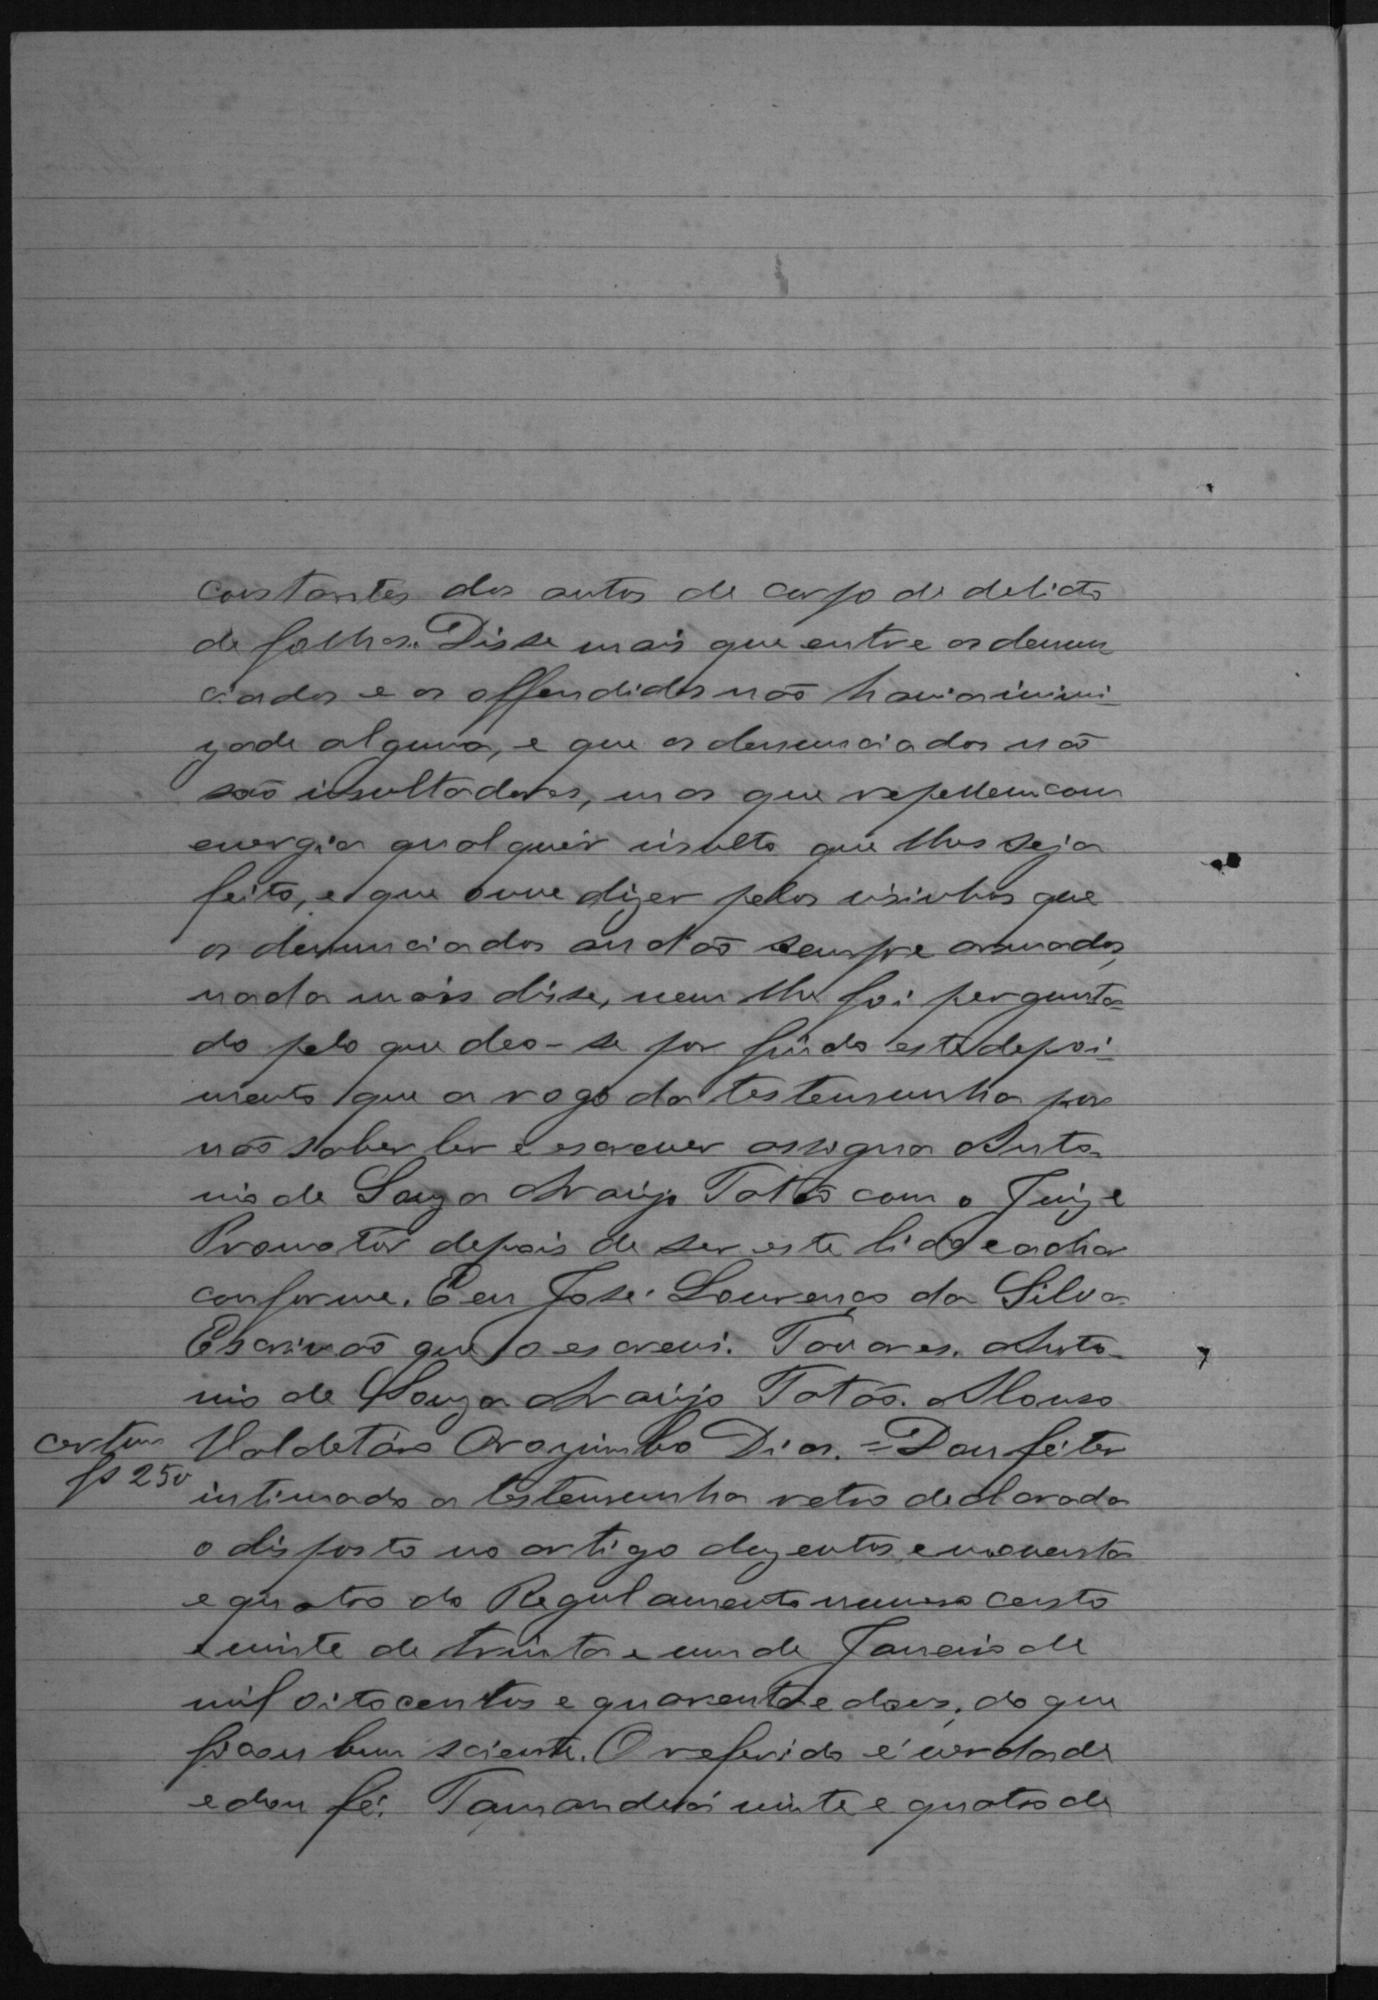 constantes dos autos de corpo de delicto
de folhas. Disse mais que entre os denun
ciados e os offendidos não havia inimi-
zade alguma, e que os denunciados não
são insultadores, mas que repellem com
energia qualquer insulto que lhes seja
feito, e que ouve dizer pelos visinhos que
os denunciados andão sempre armados,
nada mais disse, nem lhe foi pergunta-
do pelo que deo-se por findo este depoi-
mento que a rogo da testemunha por
não saber ler e escrever assigna Anto-
nio de Souza Araujo Tatão com o Juiz e
Promotor depois de ser este lido e achar
conforme. E eu José Lourenço da Silva
Escrivão que o escrevi. Tavares. Anto-
nio de Souza Araujo Tatão. Alonso
Valdetáro Orozimbo Dias. = Dou fé ter
certam
fs 25v
intimado a testemunha retro declarada
o disposto no artigo duzentos e noventa
e quatro do Regulamento numero cento
e vinte de trinta e um de Janeiro de
mil oitocentos e quarenta e dois, do que
ficou bem sciente. O referido é verdade
e dou fé. Tamandaré vinte e quatro de